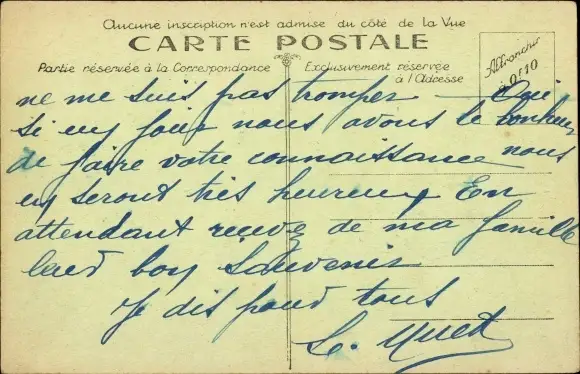 Aucune inscription n'est admise du côté de la Vue
CARTE POSTALE
Partie réservée à la Correspondance
Exclusivement réservée
à l'Adresse
Affranchir
à 0f10
ne me suis pas tromper — Oui
si un jour nous avons le bonheur
de faire votre connaissance nous
en seront très heureux En
attendant recevez de ma famille
bon Souvenir
Je dis pour tous